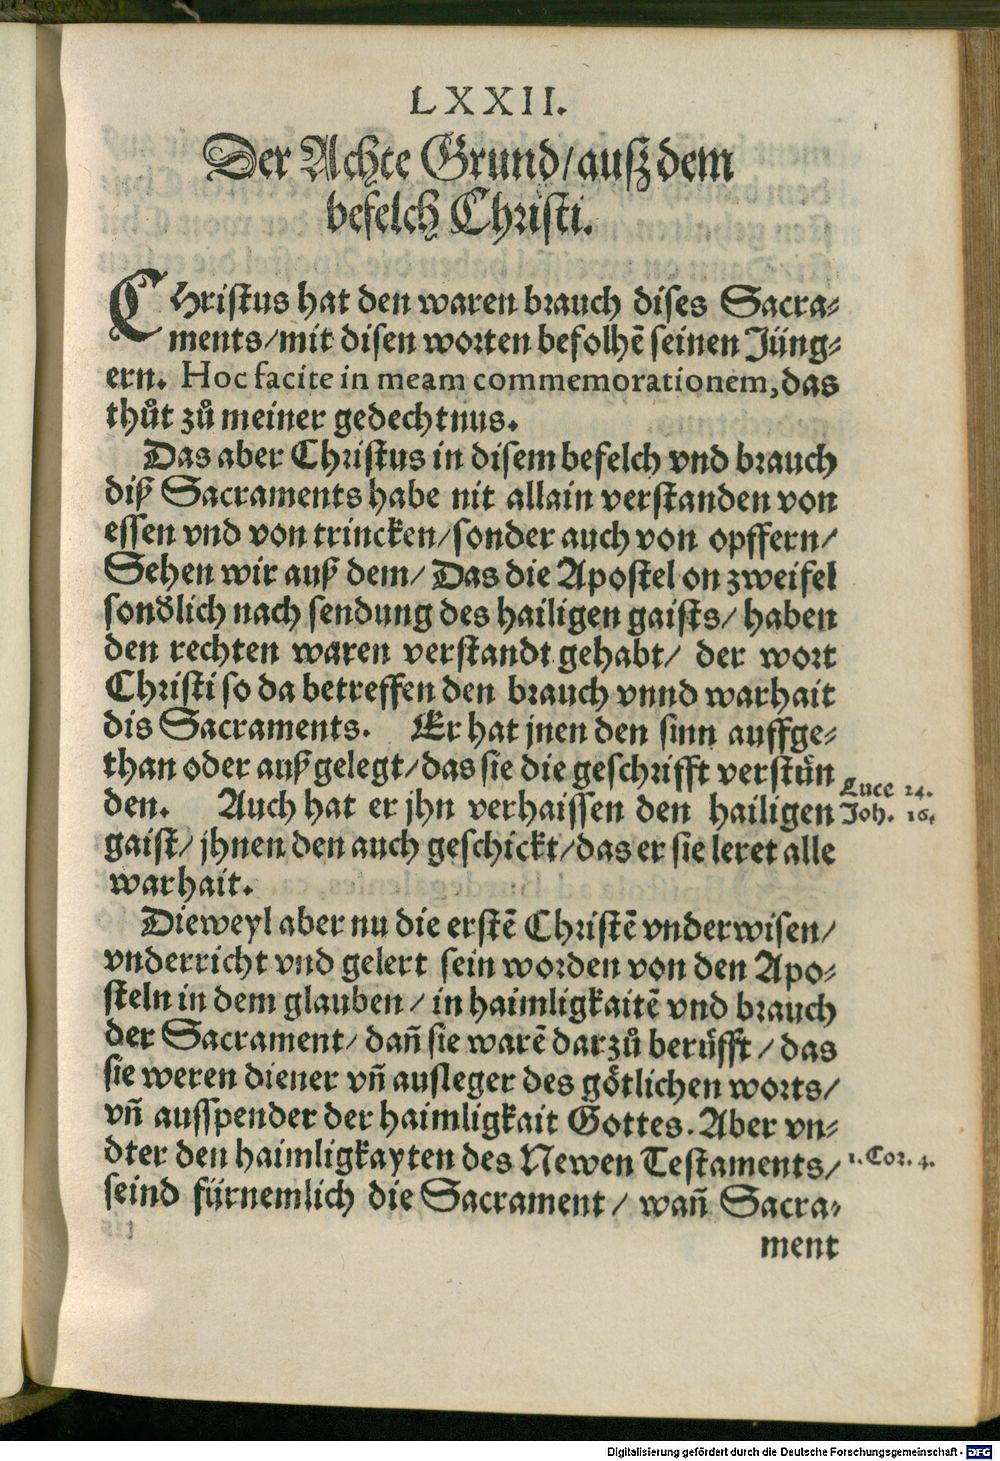 LXXII.
Der Achte Grund/auß dem
befelch Christi.
CHristus hat den waren brauch dises Sacra⸗
ments/mit disen worten befolhẽ seinen Jüng⸗
ern. Hoc facite in meam commemorationem, das
thůt zů meiner gedechtnus.
Das aber Christus in disem befelch vnd brauch
diß Sacraments habe nit allain verstanden von
essen vnd von trincken/sonder auch von opffern/
Sehen wir auß dem/ Das die Apostel on zweifel
sondlich nach sendung des hailigen gaists/ haben
den rechten waren verstandt gehabt/ der wort
Christi so da betreffen den brauch vnnd warhait
dis Sacraments. Er hat jnen den sinn auffge⸗
than oder auß gelegt/das sie die geschrifft verstün
Luce 24.
den. Auch hat er jhn verhaissen den hailigen
Joh. 16.
gaist/ jhnen den auch geschickt/das er sie leret alle
warhait.
Dieweyl aber nu die erstẽ Christẽ vnderwisen/
vnderricht vnd gelert sein worden von den Apo⸗
steln in dem glauben/ in haimligkaitẽ vnd brauch
der Sacrament/ dañ sie warẽ darzů berüfft/ das
sie weren diener vñ ausleger des götlichen worts/
vñ ausspender der haimligkait Gottes. Aber vn⸗
dter den haimligkayten des Newen Testaments/
1. Cor. 4.
seind fürnemlich die Sacrament/ wañ Sacra⸗
ment
Digitalisierung gefördert durch die Deutsche Forschungsgemeinschaft - DFG